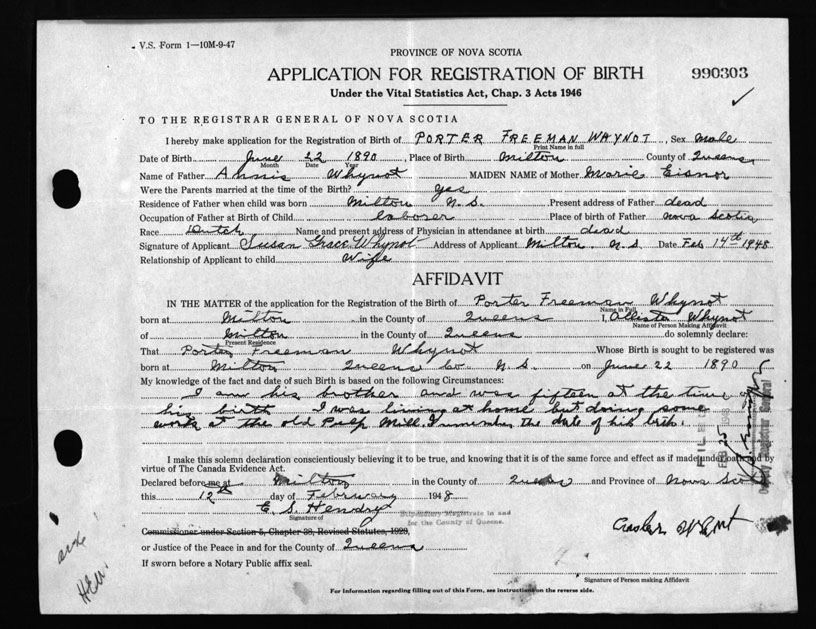 V.S. Form 1—10M-9-47
PROVINCE OF NOVA SCOTIA
APPLICATION FOR REGISTRATION OF BIRTH 990303
Under the Vital Statistics Act, Chap. 3 Acts 1946
TO THE REGISTRAR GENERAL OF NOVA SCOTIA
I hereby make application for the Registration of Birth of PORTER FREEMAN WAYNOT, Sex Male
Print Name in full
Date of Birth June 22 1890, Place of Birth Milton County of Queens
Month Date Year
Name of Father Whynot MAIDEN NAME of Mother Marie Eisnor
Were the Parents married at the time of the Birth? yes
Residence of Father when child was born Milton N.S. Present address of Father dead
Occupation of Father at Birth of Child laborer Place of birth of Father Nova Scotia
Race Dutch Name and present address of Physician in attendance at birth dead
Signature of Applicant Susan Grace Whynot Address of Applicant Milton N.S. Date Feb 14th 1948
Relationship of Applicant to child Wife
AFFIDAVIT
IN THE MATTER of the application for the Registration of the Birth of Porter Freeman Whynot
Name in Full
born at Milton in the County of Queens I, Whynot
Name of Person Making Affidavit
of Milton in the County of Queens do solemnly declare:
Present Residence
That Porter Freeman Whynot Whose Birth is sought to be registered was
born at Milton Queens Co N.S. on June 22 1890
My knowledge of the fact and date of such Birth is based on the following Circumstances:
I am his brother and was fifteen at the time of
his birth I was living at home but doing some
work at the old Pulp Mill. I remember the date of his birth.
FILED
FEB 25 1948
Deputy Registrar General
I make this solemn declaration conscientiously believing it to be true, and knowing that it is of the same force and effect as if made under oath and by
virtue of The Canada Evidence Act.
Declared before me at Milton in the County of Queens and Province of Nova Scotia
this 12th day of February 1948
E. S. Hendry
Signature of
Stipendiary Magistrate in and
for the County of Queens.
Commissioner under Section 5, Chapter 38, Revised Statutes, 1923,
or Justice of the Peace in and for the County of Queens
If sworn before a Notary Public affix seal.
Signature of Person making Affidavit
For Information regarding filling out of this Form, see instructions on the reverse side.